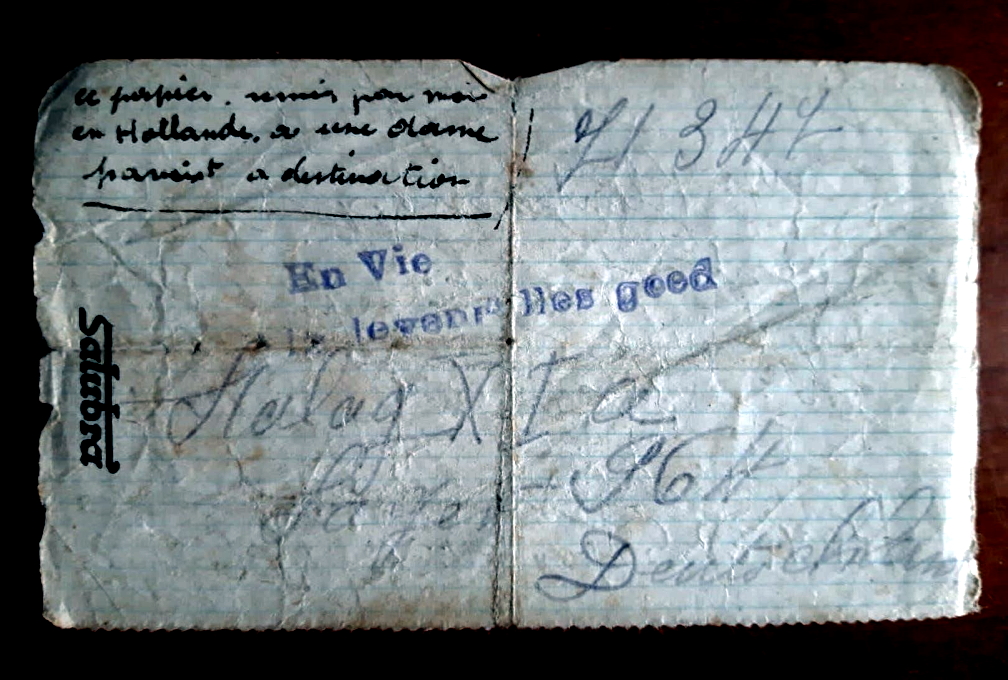 ce papier, remis par moi
en Hollande, a une dame
parvint a destination
71 344
En Vie
In leven Alles goed
Stalag XI a
364
Deutschlan
Salubra